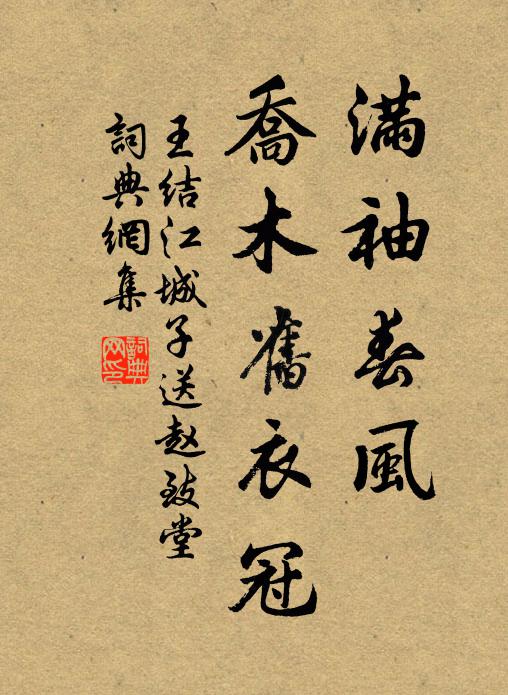 滿袖春風
喬木舊衣冠
王結江城子送赵致堂
詞典網集
詞典网印